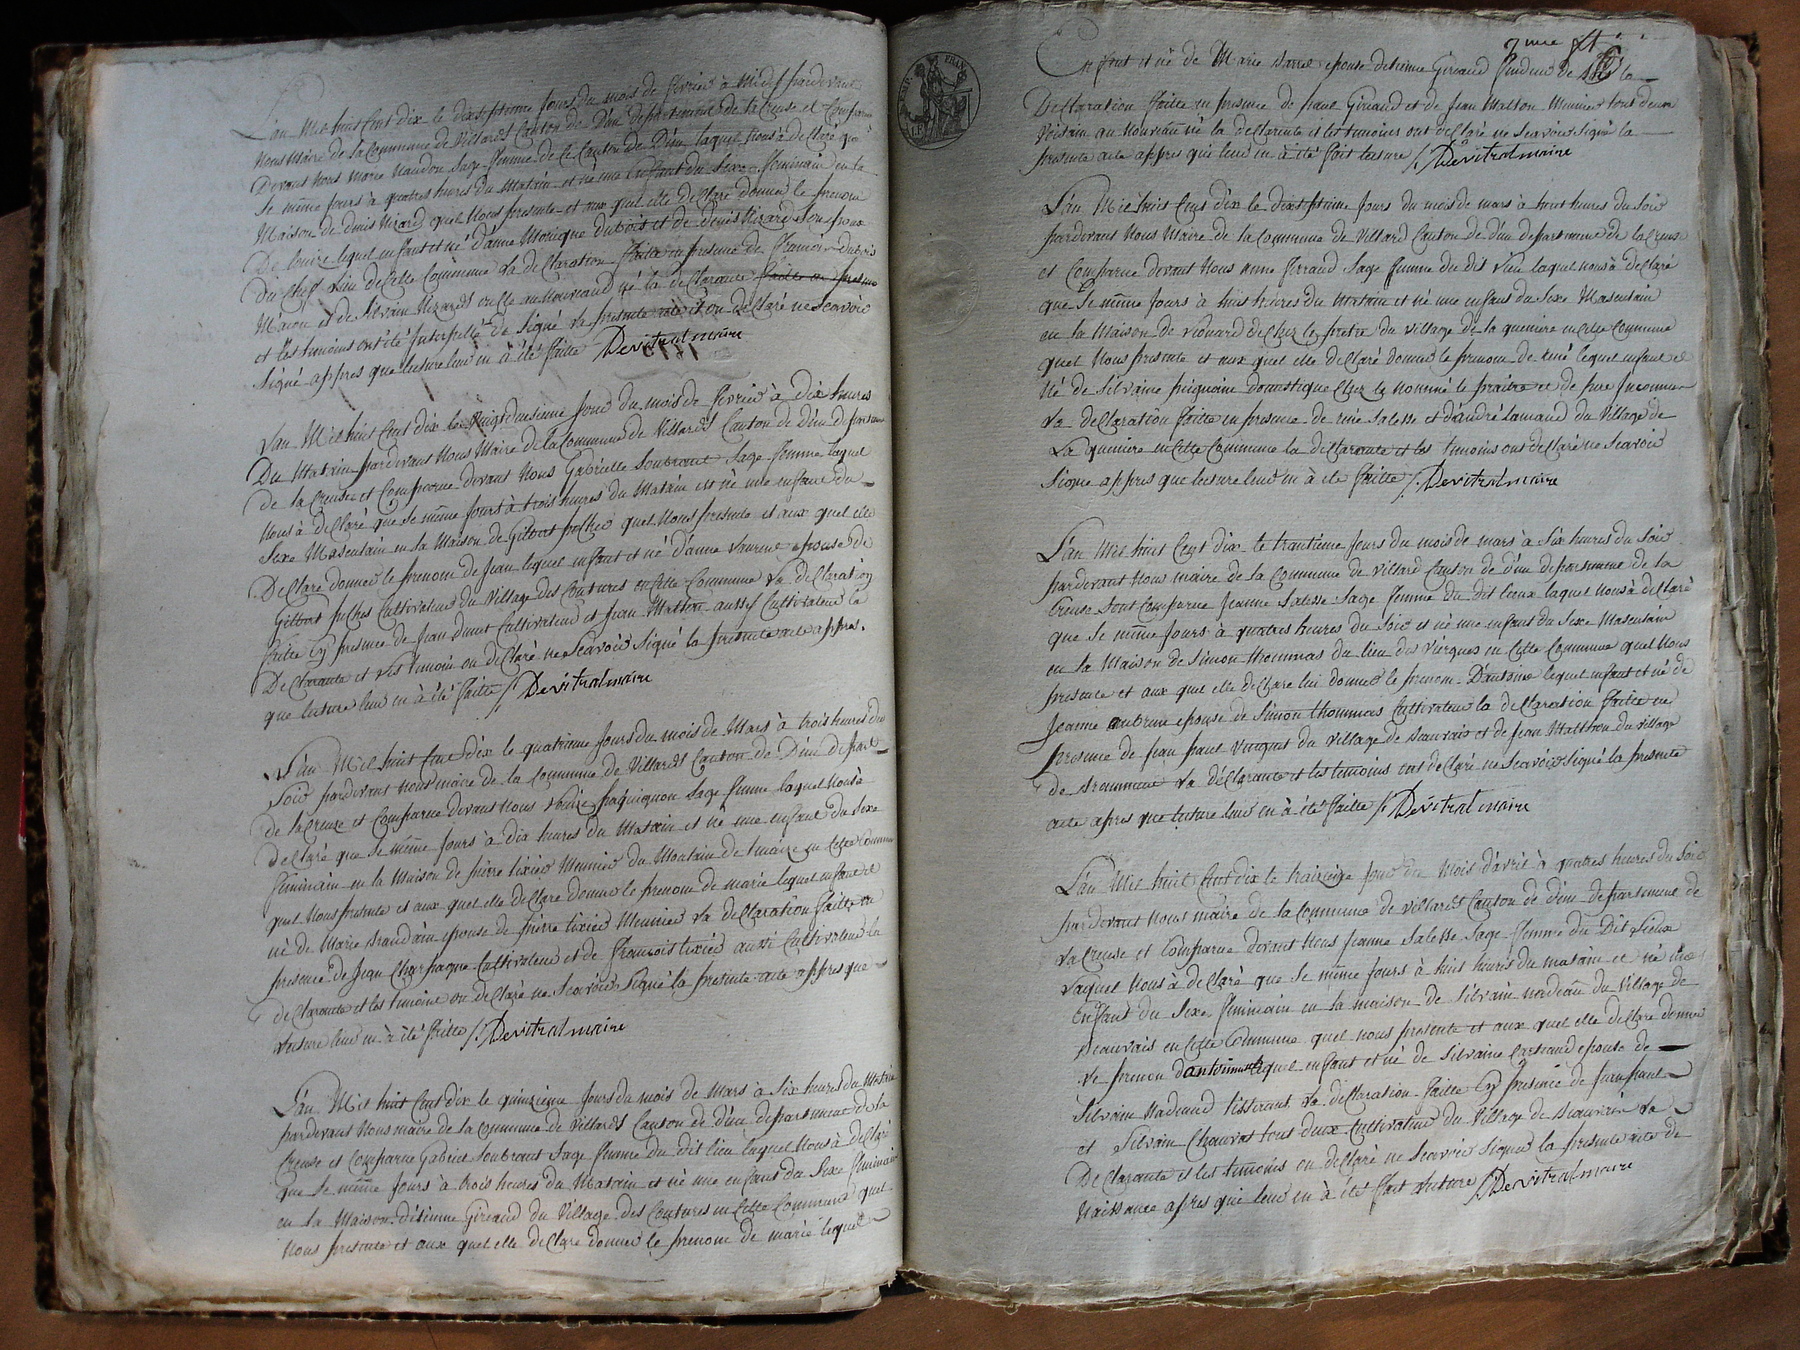 L'an Mil huit Cent dix le dixseptieme Jours du mois de fevrier à Midi pardevant
Nous Maire de la Commune de Villard Canton de Dún departement de la Creuse et Comparue
Devant Nous Marie Naudon Sage femme de Ce Canton de Dún laquel Nous à déClaré que
Se même Jours à quatres heures du Matain et né une Enfant du Sexe feminain en la
Maison de denis Nizard quel Nous presente et aux quel elle deClare donner le prenom
De louise lequel enfant et né d'anne Monique dubois et de denis Nizard Son epoux
Du Chef lieu de Cette Commune La deClaration faitte en presence de francois
Macon et de Silvain Nizard oncle au Nouveaud né la deClarante faitte en presence
et Les temoins ont été Interpellé de Signé La presente acte et on deClaré ne Scavoir
Signé appres que lecture leur en à été faitte Devitral maire
L'an Mil huit Cent dix le Vingt deusieme Jour du mois de fevrier à dix heures
Du Matain pardevant Nous Maire de la Commune de Villard Canton de Dún departement
de la Creuse et Comparue devant Nous Gabrielle Soubrant Sage femme laquel
Nous à deClaré que Se même Jours à trois heures du Matain et né une enfant du
Sexe Masculain en la Maison de Gilbert quel Nous presente et aux quel elle
DeClare donner le prenom de Jean lequel enfant et né d'anne Laurent epouse de
Gilbert Cultivateur du Village des Coutures en Cette Commune La deClaration
faitte En presence de Jean Cultivateur et Jean Mathon aussy Cultivateur la
DeClarante et Les temoin on deClaré ne Scavoir Signé la presente acte appres
que lecture leur en à été faitte /. Devitral maire
L'an Mil huit Cent dix le quatrieme Jours du mois de Mars à trois heures du
Soir pardevant nous maire de la Commune de Villard Canton de Dún depart
de la Creuze et Comparue devant Nous louize paquignon Sage femme laquel Nous à
deClaré que Se même Jours à dix heures du Matain et né une enfant du Sexe
feminain en la Maison de pierre tixier Meunier du Moulain de en Cette Commune
quel Nous presente et aux quel elle deClare donner le prenom de marie lequel enfant et
né de Marie Brandain epouse de pierre tixier Meunier La deClaration faitte en
presence de Jean Charpagne Cultivateur et de francois tixier aussi Cultivateur la
deClarante et les temoins on deClaré ne Scavoir Signé la presente acte appres que
Lecture leur en à été faitte /. Devitral maire
L'an Mil huit Cent dix le quinzieme Jours du mois de Mars à Six heures du Matain
pardevant Nous maire de la Commune de Villard Canton de Dún departement de la
Creuse et Comparue Gabriel Soubrant Sage femme du dit lieu laquel Nous à deClaré
que Se même Jours à trois heures du Matain et né une enfant du Sexe feminain
en la Maison d'etienne Giraud du Village des Coutures en Cette Commune quel
Nous presente et aux quel elle deClare donner le prenom de marie lequel
Enfant et né de Marie epouse detienne Giraud la
DeClaration faitte en presence de paul Giraud et de Jean Mallon Meunier tout deux
Voisain au Nouveau né la deClarente et les temoins ont deClaré ne Scavoir Signé la
presente acte appres que leur en à été fait lecture /. Devitral maire
L'an Mil huit Cent dix le dixseptieme Jours du mois de mars à huit heures du Soir
pardevant Nous Maire de la Commune de Villard Canton de dún departement de la Creuse
et Comparue devant Nous Anne ferraud Sage femme du dit Lieu laquel nous à deClaré
que Se même Jours à huit heures du Matain et né une enfant du Sexe Masculain
en la Maison de de Chez le du village de la quemiere en Cette Commune
quel Nous presente et aux quel elle deClaré donner le prenom de René lequel enfant et
Né de Silvaine domestique Chez le nommé le et de pere Inconnue
La deClaration faitte en presence de réné Salesse et d'andré Lamaud du Village de
La quemiere en Cette Commune la deClarante et les temoins ont deClaré ne Scavoir
Signe appres que lecture leur en à été faitte /. Devitral maire
L'an Mil huit Cent dix le trantieme Jours du mois de mars à Six heures du Soir
pardevant Nous maire de la Commune de Villard Canton de dún departement de la
Creuse Sont Comparue Jeanne Salesse Sage femme du dit lieux laquel nous à deClaré
que Se même Jours à quatres heures du Soir et né une enfant du Sexe Masculain
en la Maison de Simon thommas du lieu des Viergnes en Cette Commune quel Nous
presente et aux quel elle deClare lui donner le prenom D'antoine lequel enfant et né de
Jeanne aubrun epouse de Simon thommas Cultivateur la deClaration faitte en
presence de Jean paul du Village de beauvais et de Jean Matthon du Village
de La déClarante et les temoins ont deClaré ne Scavoir Signé la presente
acte apres que lecture leur en à été faitte /. Devitral maire
L'an Mil huit Cent dix le traizieme Jour du Mois d'avril à quatres heures du Soir
pardevant nous maire de la Commune de Villard Canton de dún departement de
La Creuse et Comparue devant Nous Jeanne Salesse Sage femme du Dit Lieux
Laquel Nous à déClaré que Se même Jours à huit heures du matain et né une
Enfant du Sexe feminain en la maison de Silvain nadeaud du Village de
Beauvais en Cette Commune quel nous presente et aux quel elle deClare donner
Le prenom dantoinette lequel enfant et né de Silvaine epouse de
Silvain Nadeaud tisserant La deClaration faitte En presence de Jean paul
et Silvain Chauvat tout deux Cultivateur du Village de beauvais La
DeClarante et les temoins on deClaré ne Scavoir Signer la presente acte de
Naissance apres que leur en à été fait lecture /. Devitral maire